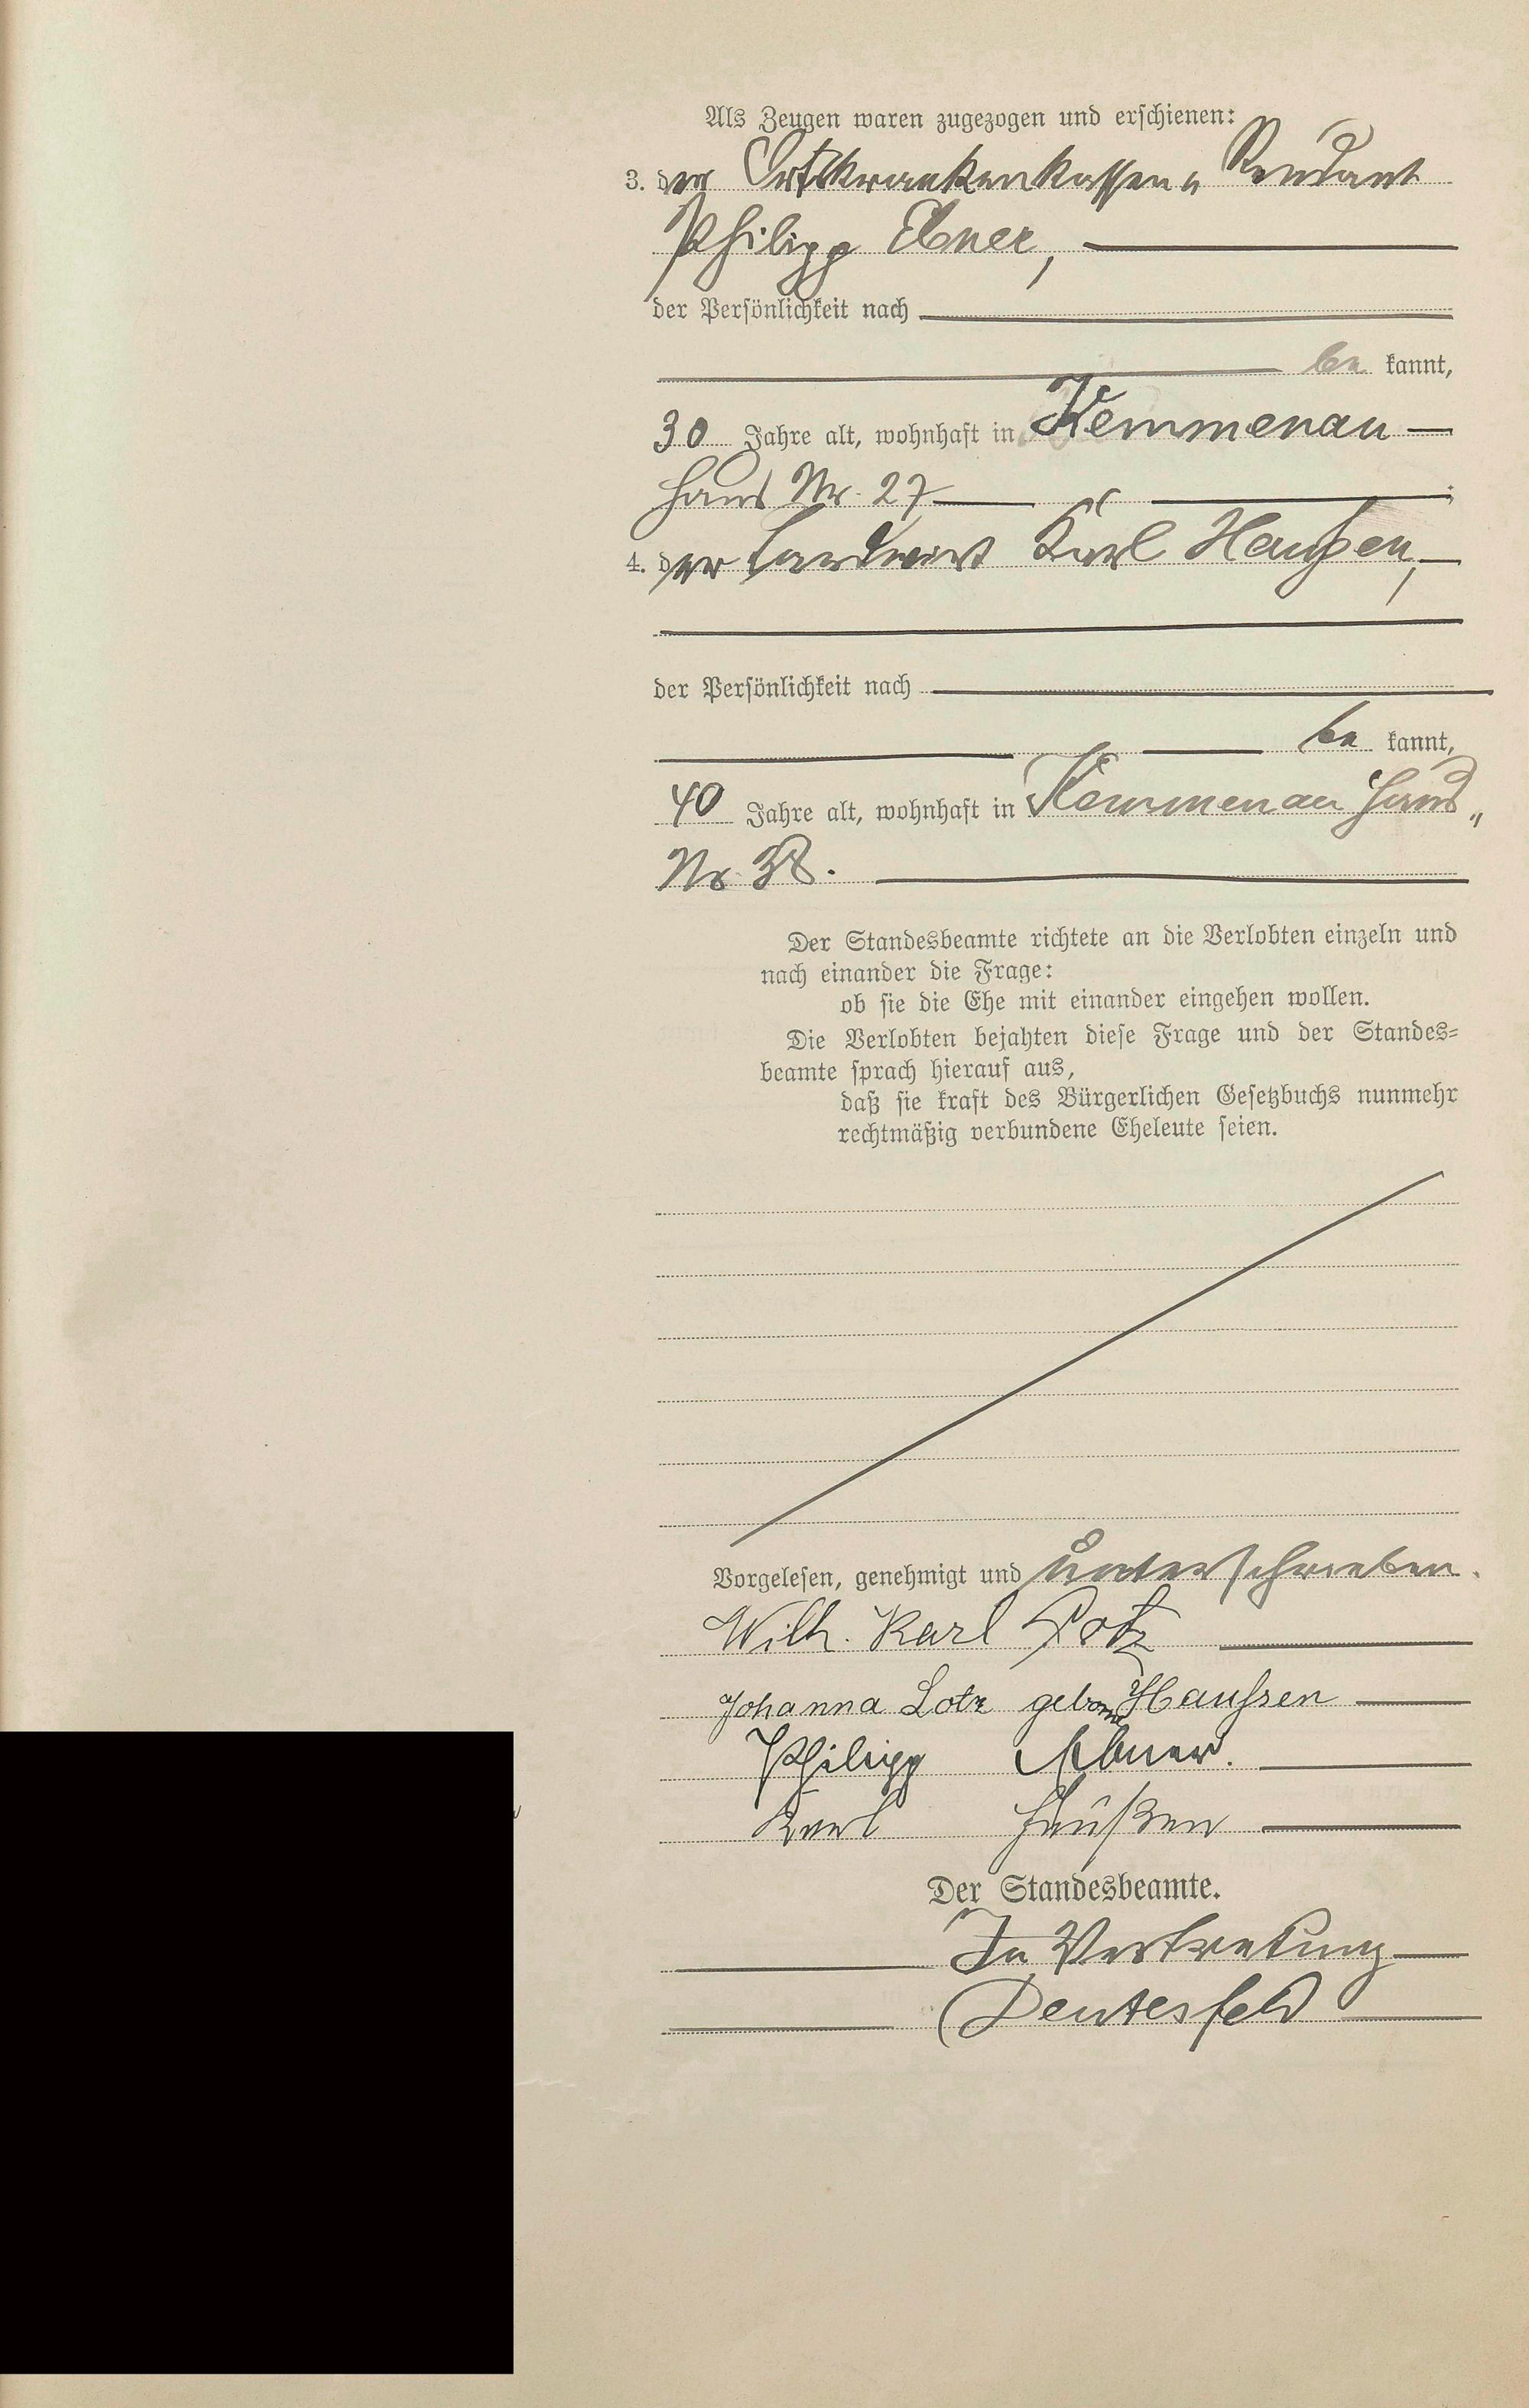 Als Zeugen waren zugezogen und erschienen:
3. der Ortskrankenkassen„Rendant
Philipp Ebner,
der Persönlichkeit nach
be kannt,
30 Jahre alt, wohnhaft in Kemmenau
Haus Nr. 27
4. der Landwirt Karl Haußen,
der Persönlichkeit nach
be kannt,
40 Jahre alt, wohnhaft in Kemmenau Haus„
Nr 38.
Der Standesbeamte richtete an die Verlobten einzeln und
nach einander die Frage:
ob sie die Ehe mit einander eingehen wollen.
Die Verlobten bejahten diese Frage und der Standes=
beamte sprach hierauf aus,
daß sie kraft des Bürgerlichen Gesetzbuchs nunmehr
rechtmäßig verbundene Eheleute seien.
Vorgelesen, genehmigt und unterschrieben.
Wilh. Karl Lotz
Johanna Lotz geborne Haußen
Philipp Ebner.
Karl Haußen
Der Standesbeamte.
In Vertretung